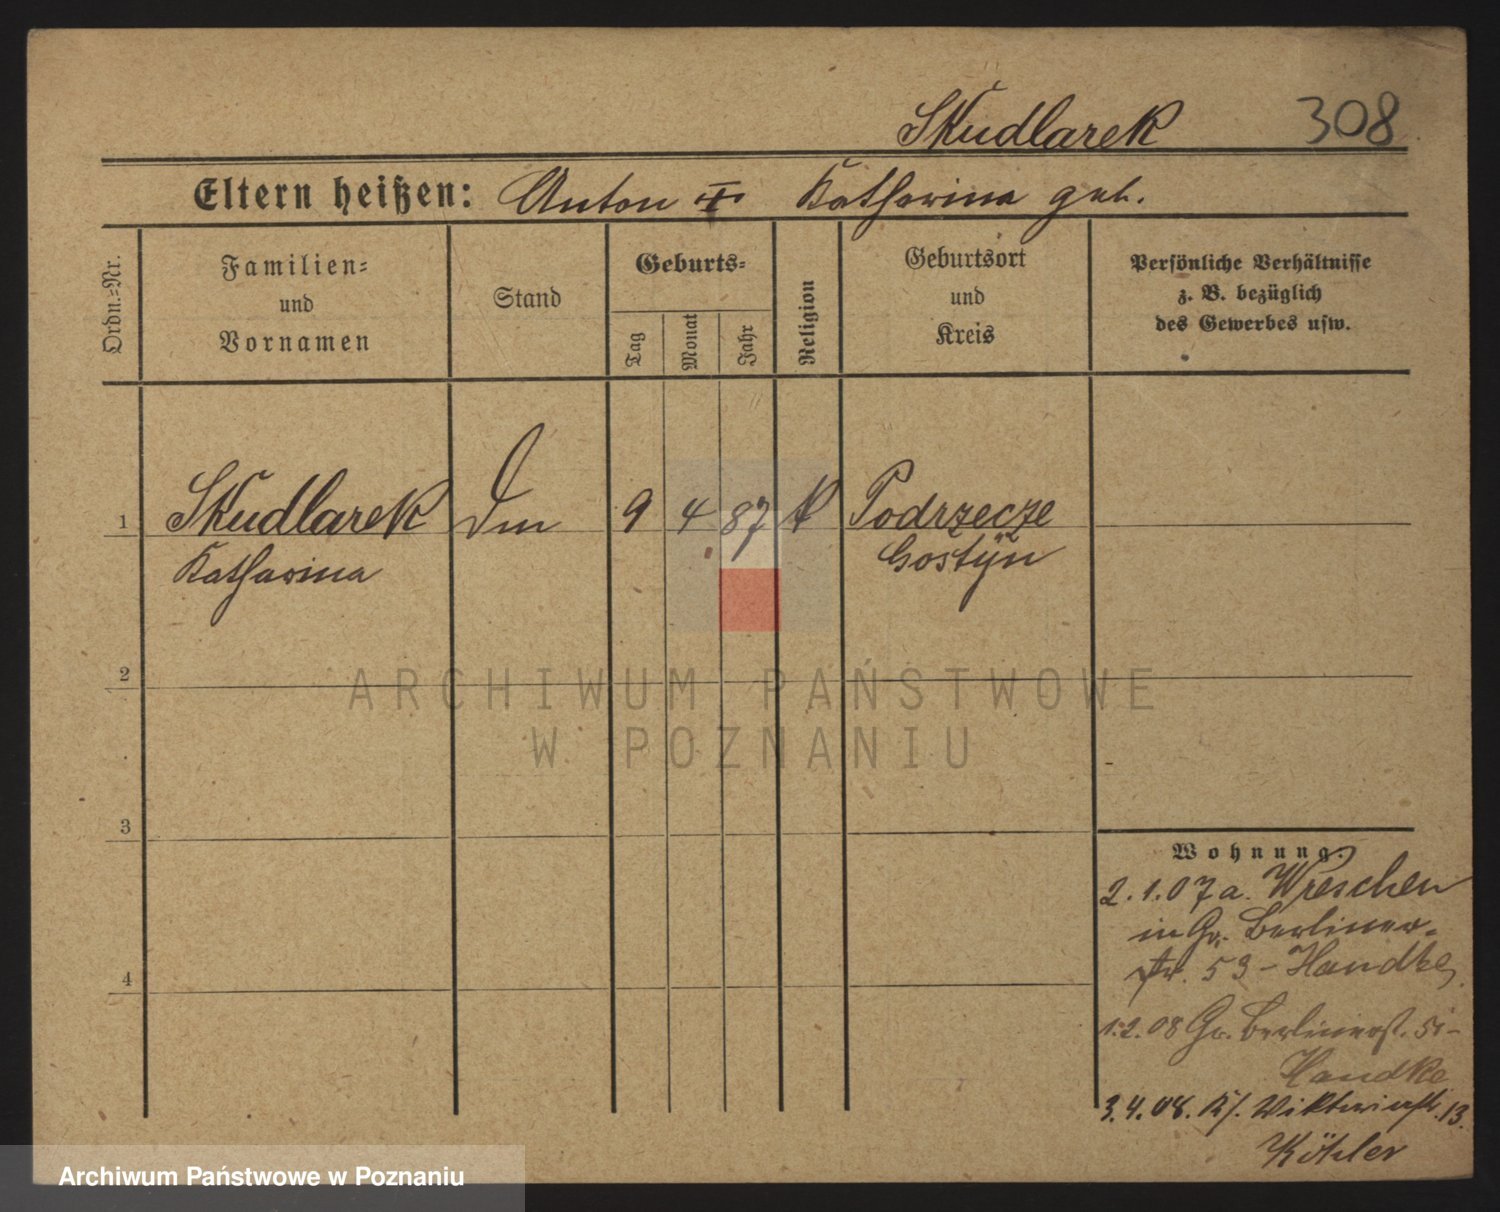 Skudlarek 308
Eltern heißen: Anton + Katharina geb.
Ordn.-Nr.
Familien-
und
Vornamen
Stand
Geburts-
Tag
Monat
Jahr
Religion
Geburtsort
und
Kreis
Persönliche Verhältnisse
z. B. bezüglich
des Gewerbes usw.
1 Skudlarek Dm 9 4 87 k Podrzecze
Katharina Gostÿn
2
ARCHIWUM PAŃSTWOWE
W POZNANIU
3
Wohnung.
2.1.07 a. Wreschen
in Gr. Berliner-
str. 53 - Handke,
4
1.2.08 Gr. Berlinerst. 51-
Handke
3.4.08. Kl. 13.
Köhler
Archiwum Państwowe w Poznaniu